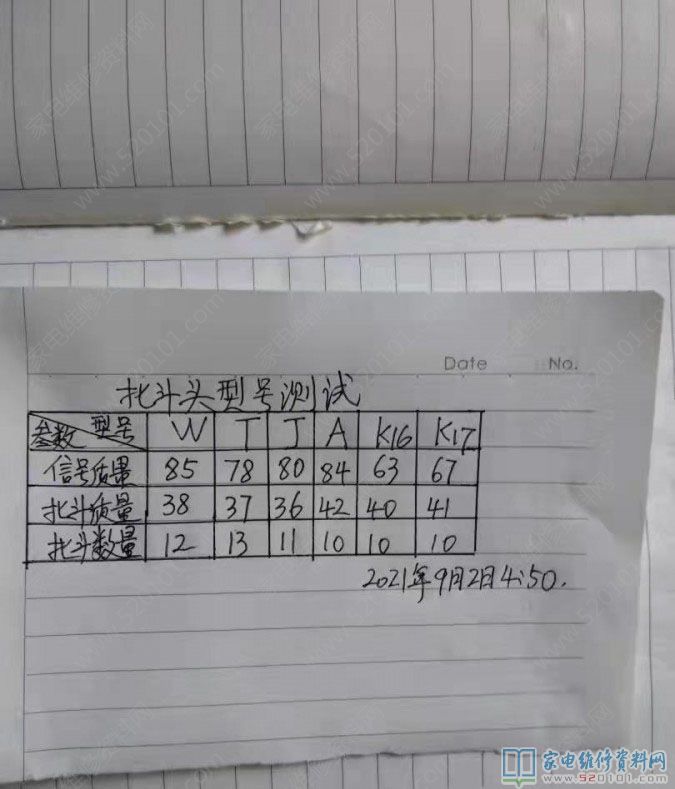 Date No.
北斗头型号测试
参数 型号 W T J A K16 K17
信号质量 85 78 80 84 63 67
北斗质量 38 37 36 42 40 41
北斗数量 12 13 11 10 10 10
2021年9月2日4:50.
家电维修资料网
www.520101.com